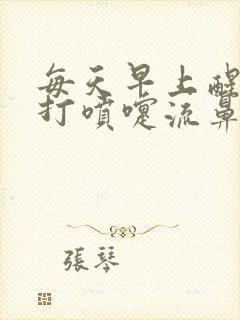 每天早上醒
打噴嚏流鼻
張琴